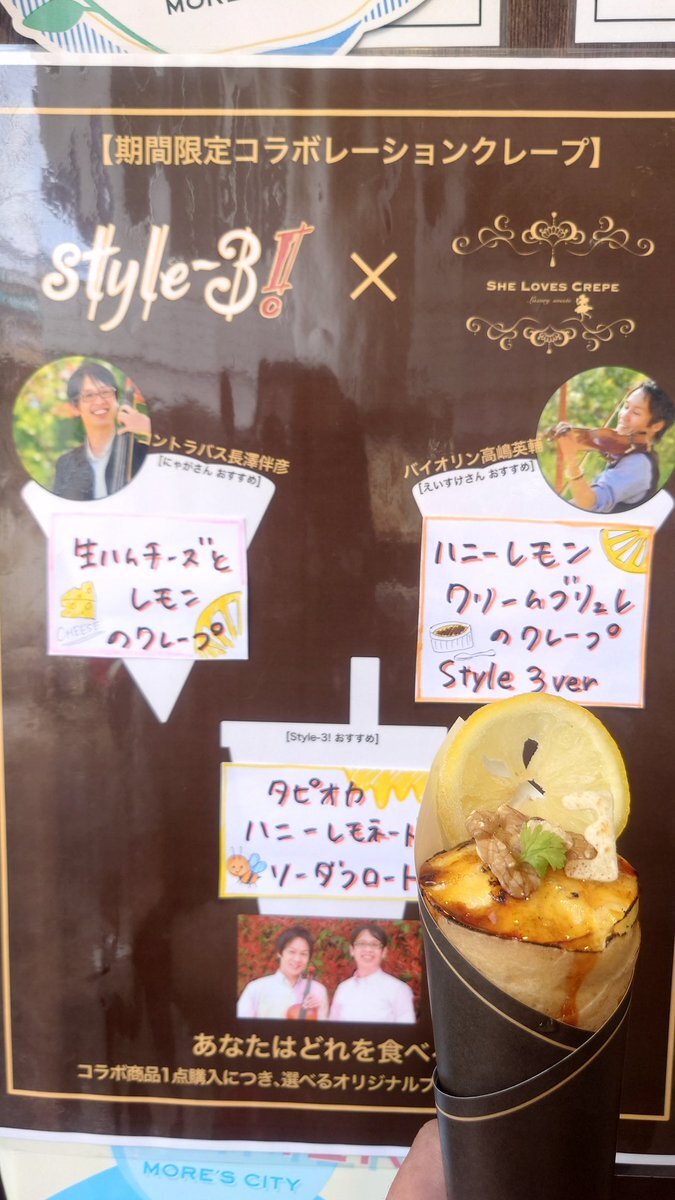 MORE
【期間限定コラボレーションクレープ】
style-3!
×
SHE LOVES CREPE
Luxury sweets
コントラバス長澤伴彦
[にゃがさん おすすめ]
バイオリン高嶋英輔
[えいすけさん おすすめ]
生ハムチーズと
レモン
のクレープ
CHEESE
ハニーレモン
クリームブリュレ
のクレープ
Style 3 ver
[Style-3! おすすめ]
タピオカ
ハニーレモネード
ソーダフロート
あなたはどれを食べ
コラボ商品1点購入につき、選べるオリジナル
MORE'S CITY